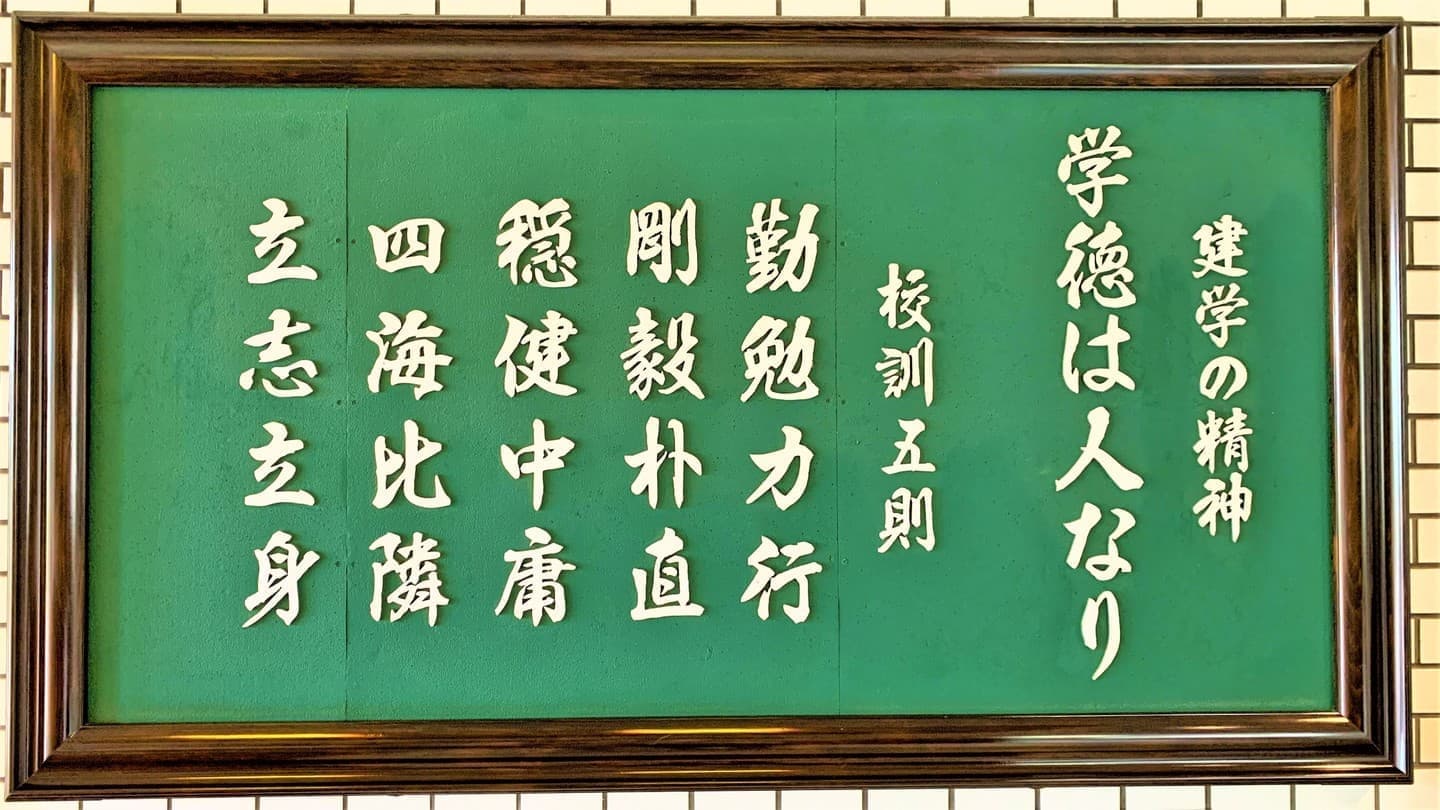 建学の精神
学徳は人なり
校訓五則
勤勉力行
剛毅朴直
穏健中庸
四海比隣
立志立身